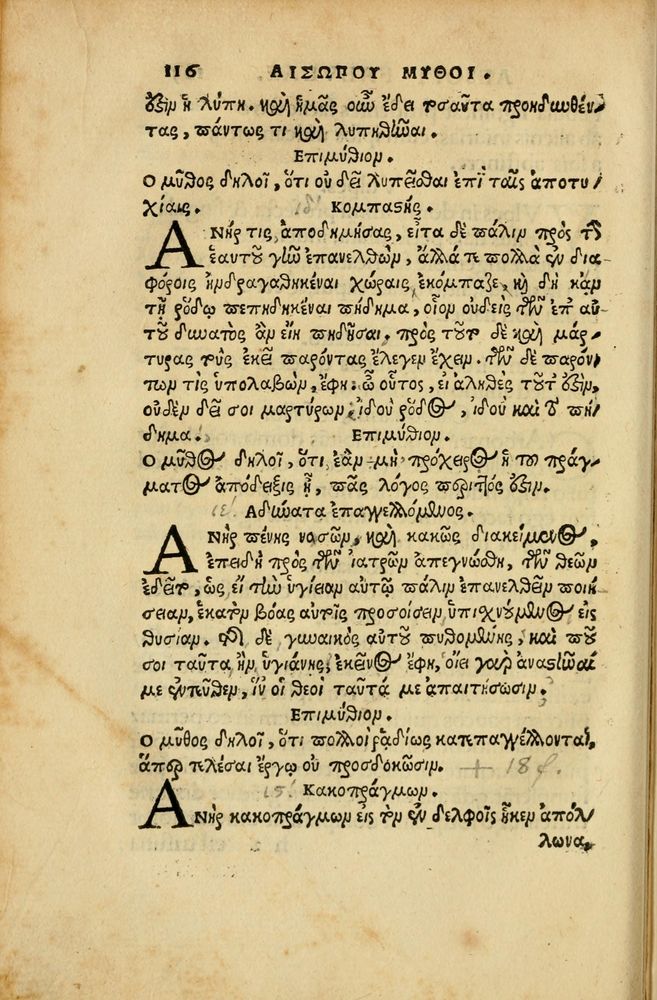 116 ΑΙΣΩΠΟΥ ΜΥΘΟΙ.
ἐστὶν ἡ λύπη. καὶ ἡμᾶς οὖν ἔδει τοσαῦτα προηδυνθέν-
τας, πάντως τι καὶ λυπηθῆναι.
Επιμύθιον.
Ο μῦθος δηλοῖ, ὅτι οὐ δεῖ λυπεῖσθαι ἐπὶ ταῖς ἀποτυ-
χίαις. Κομπαστής.
ΑΝΗΡ τις ἀποδημήσας, εἶτα δὲ πάλιν πρὸς τὴν
ἑαυτοῦ γῆν ἐπανελθὼν, ἄλλά τε πολλὰ ἐν δια-
φόροις ἠνδραγαθηκέναι χώραις ἐκόμπαζε, καὶ δὴ κἀν
τῇ ῥόδῳ πεπηδηκέναι πήδημα, οἷον οὐδεὶς τῶν ἐπ' αὐ-
τοῦ δυνατὸς ἂν εἴη πηδῆσαι. πρὸς τοῦτο δὲ καὶ μάρ-
τυρας τοὺς ἐκεῖ παρόντας ἔλεγεν ἔχειν. τῶν δὲ παρόν-
των τὶς ὑπολαβὼν, ἔφη. ὦ οὗτος, εἰ ἀληθὲς τοῦτ' ἐστὶν,
οὐδὲν δεῖ σοι μαρτύρων. ἰδοὺ ῥόδος, ἰδοὺ καὶ τὸ πή-
δημα. Επιμύθιον.
Ο μῦθος δηλοῖ, ὅτι ἐὰν μὴ πρόχειρος ἡ τοῦ πράγ-
ματος ἀπόδειξις ᾖ, πᾶς λόγος περιττὸς ἐστὶν.
Αδύνατα ἐπαγγελλόμενος.
ΑΝΗΡ πένης νοσῶν, καὶ κακῶς διακείμενος,
ἐπειδὴ πρὸς τῶν ἰατρῶν ἀπεγνώσθη, τῶν θεῶν
ἐδεῖτο, ὡς εἰ τὴν ὑγίειαν αὐτῷ πάλιν ἐπανελθεῖν ποιή-
σειαν, ἑκατὸν βόας αὐτοῖς προσοίσειν ὑπισχνούμενος εἰς
θυσίαν. τῆς δὲ γυναικὸς αὐτοῦ πυθομένης, καὶ ποῦ
σοι ταῦτα ἢν ὑγιάνῃς, ἐκεῖνος ἔφη, οἴει γὰρ ἀναστῆναί
με ἐντεῦθεν, ἵν' οἱ θεοὶ ταῦτά με ἀπαιτήσωσιν.
Επιμύθιον.
Ο μῦθος δηλοῖ, ὅτι πολλοὶ ῥαδίως κατεπαγγέλλονται,
ἅπερ τελέσαι ἔργῳ οὐ προσδοκῶσιν. + 18 f.
15. Κακοπράγμων.
ΑΝΗΡ κακοπράγμων εἰς τὸν ἐν δελφοῖς ἧκεν ἀπόλ-
λωνα,